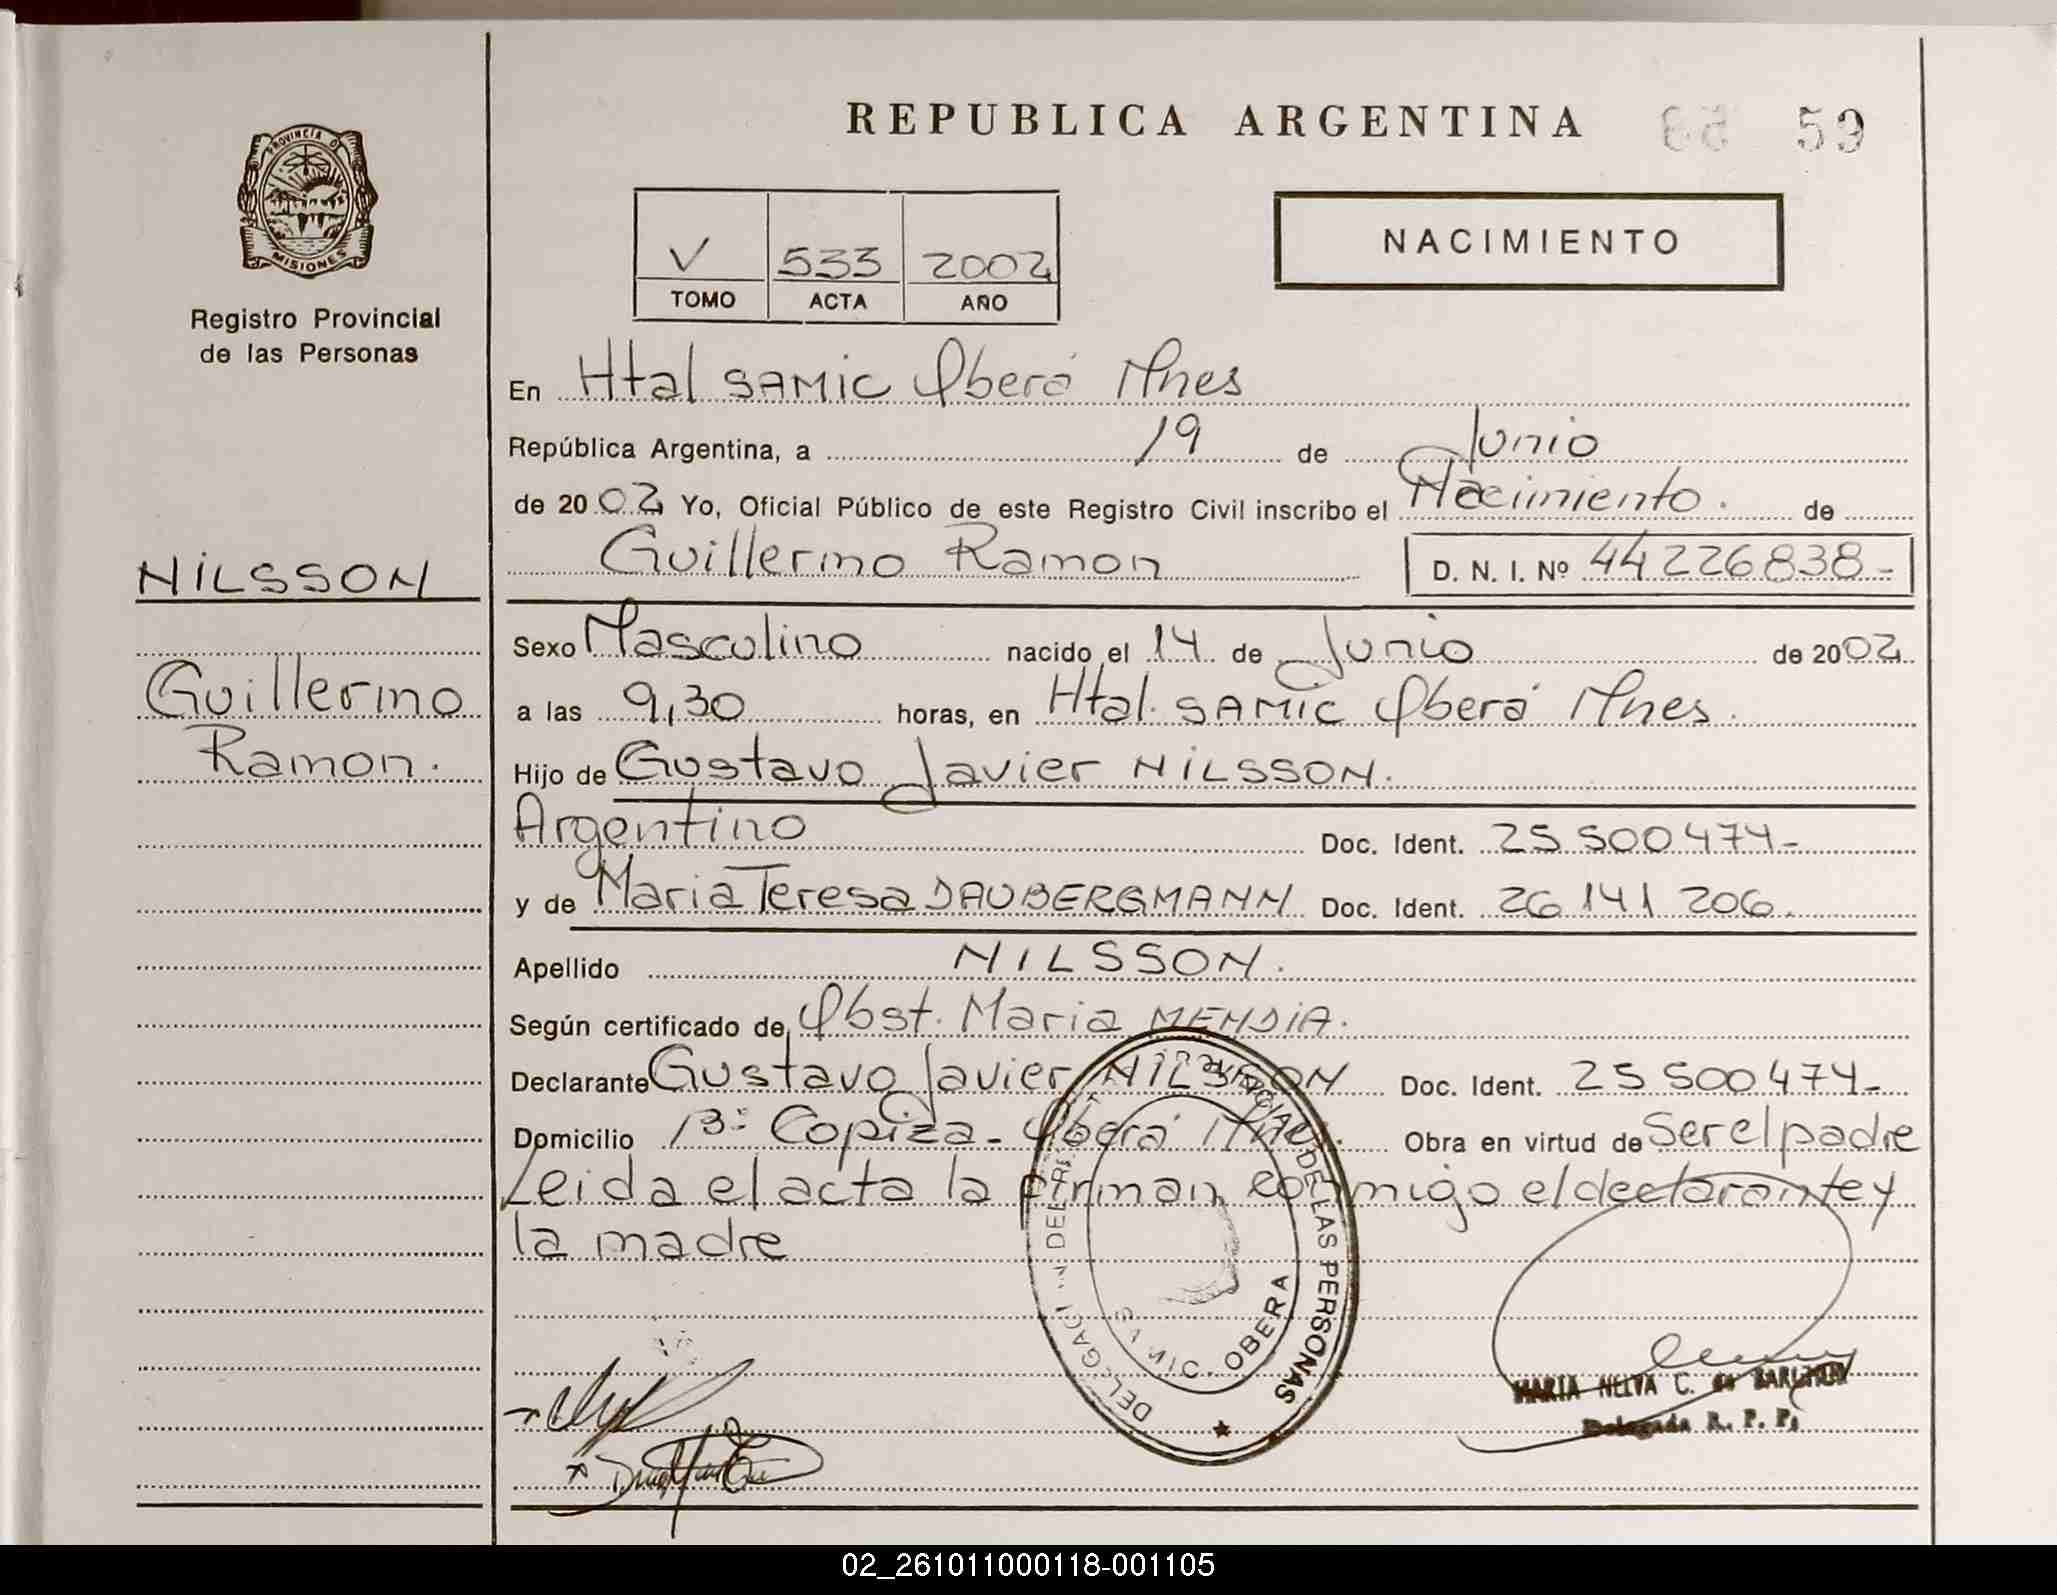 REPUBLICA ARGENTINA 59
PROVINCIA D
MISIONES
Registro Provincial
de las Personas
V 533 2002
TOMO ACTA AÑO
NACIMIENTO
En Htal SAMIC Oberá Mnes
República Argentina, a 19 de Junio
de 2002 Yo, Oficial Público de este Registro Civil inscribo el Nacimiento. de
Guillermo Ramon D. N. I. Nº 44226838-
NILSSON
Guillermo
Ramon.
Sexo Masculino nacido el 14 de Junio de 2002
a las 9,30 horas, en Htal. SAMIC Oberá Mnes.
Hijo de Gustavo Javier NILSSON.
Argentino Doc. Ident. 25 500 474-
y de Maria Teresa DAUBERGMANN Doc. Ident. 26 141 206.
Apellido NILSSON.
Según certificado de Obst. Maria MENDIA.
Declarante Gustavo Javier NILSSON Doc. Ident. 25 500 474-
Domicilio Bº Copiza - Oberá Mnes. Obra en virtud de Ser el padre
Leida el acta la firman conmigo el declarante y
la madre
DE LAS PERSONAS
OBERA
MARIA NELVA C. de
Delegada R. P. P.
02_261011000118-001105